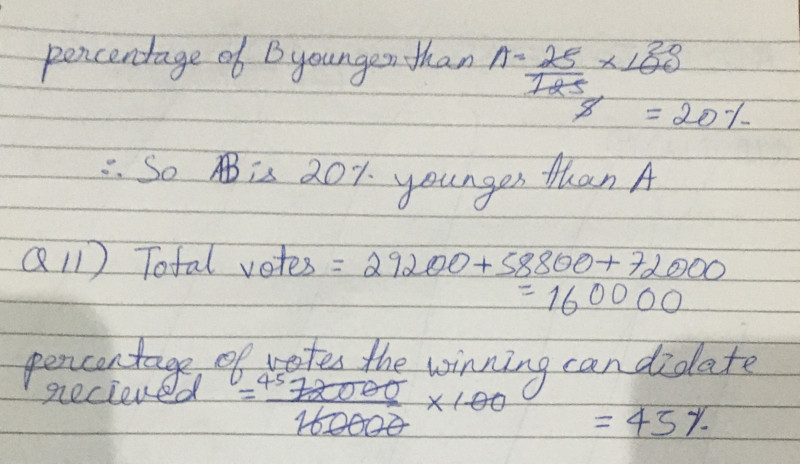 percentage of B younger than A = 25/125 × 100
= 20%
∴ So B is 20% younger than A
Q 11) Total votes = 29200 + 58800 + 72000
= 160000
percentage of votes the winning candidate
recieved = 72000/160000 × 100 = 45%